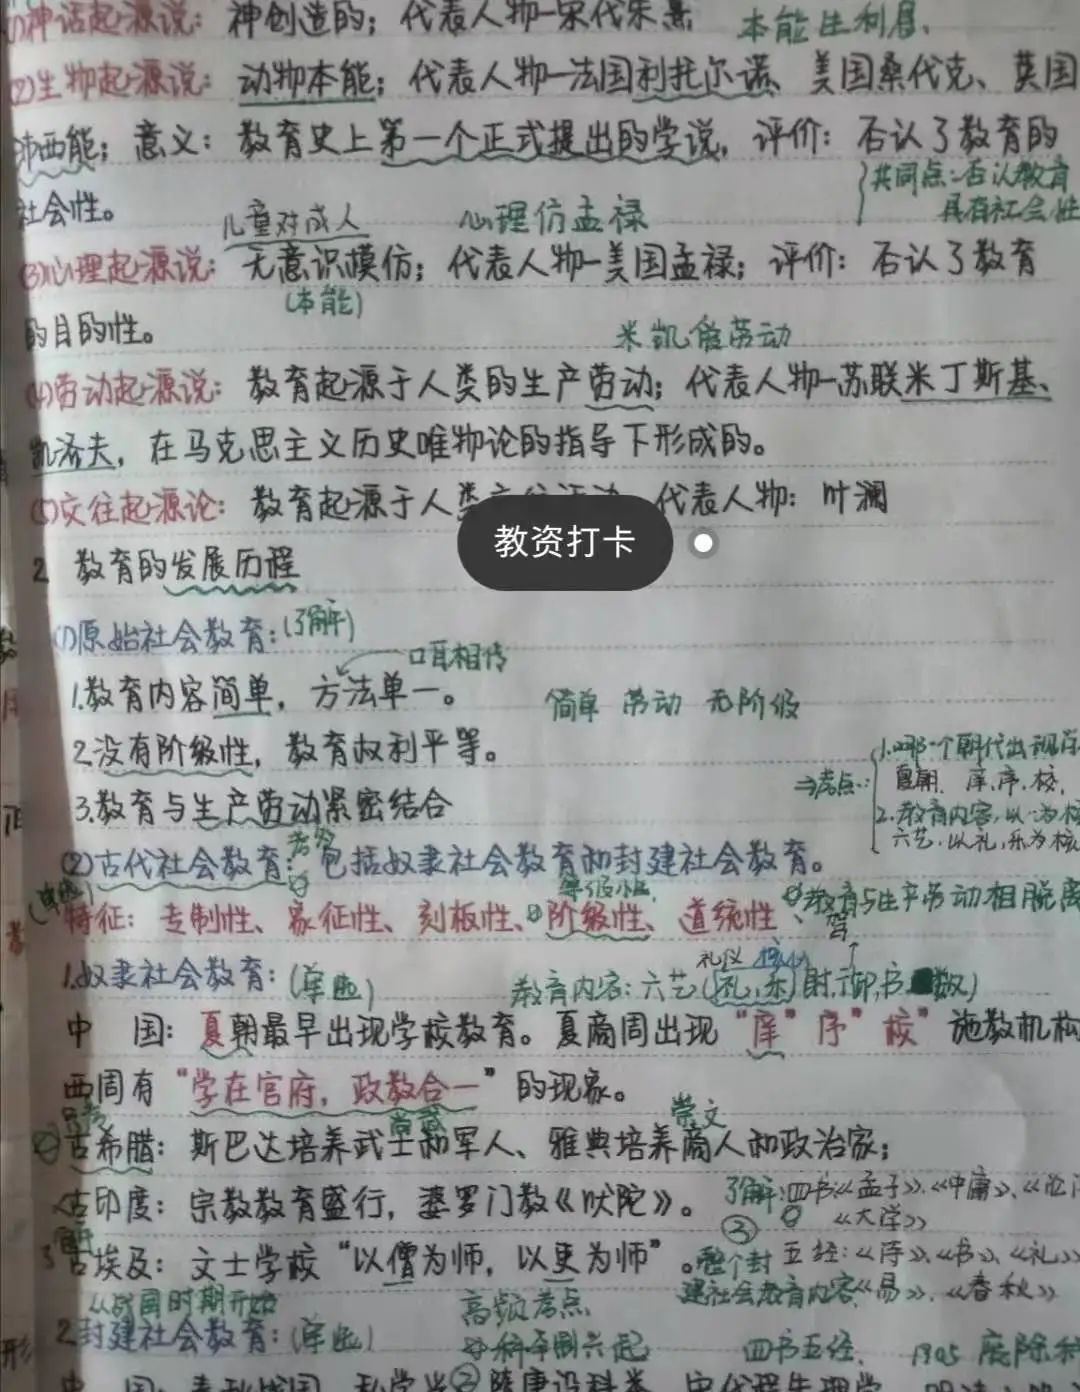 (1)神话起源说：神创造的；代表人物—宋代朱熹
本能生利息、
(2)生物起源说：动物本能；代表人物—法国利托尔诺、美国桑代克、英国
沛西能；意义：教育史上第一个正式提出的学说，评价：否认了教育的
共同点：否认教育
具有社会性
社会性。
儿童对成人
心理仿孟禄
(3)心理起源说：无意识模仿；代表人物—美国孟禄；评价：否认了教育
(本能)
的目的性。
米凯爱劳动
(4)劳动起源说：教育起源于人类的生产劳动；代表人物—苏联米丁斯基、
凯洛夫，在马克思主义历史唯物论的指导下形成的。
(5)交往起源论：教育起源于人类 代表人物：叶澜
教资打卡
2 教育的发展历程
(1)原始社会教育：(了解)
口耳相传
1.教育内容简单，方法单一。
简单 劳动 无阶级
2.没有阶级性，教育权利平等。
1.哪一个朝代出现学
⇒考点：
夏朝、庠、序、校、
3.教育与生产劳动紧密结合
2.教育内容，以
六艺，以礼，乐为核
(2)古代社会教育：包括奴隶社会教育和封建社会教育。
(单选)
等级性
教育与生产劳动相脱离
特征：专制性、象征性、刻板性、阶级性、道统性、
礼仪
1.奴隶社会教育：(单选)
教育内容：六艺(礼，乐，射，御，书，数)
中 国：夏朝最早出现学校教育。夏商周出现“庠”序”校”施教机构
西周有“学在官府，政教合一”的现象。
尚武
崇文
古希腊：斯巴达培养武士和军人、雅典培养商人和政治家；
古印度：宗教教育盛行，婆罗门教《吠陀》。
了解：四书《孟子》、《中庸》、《论
《大学》
3 古埃及：文士学校“以僧为师，以吏为师”。
整个封
五经：《诗》、《书》、《礼》
建社会教育内容
《易》、《春秋》
从战国时期开始
高频考点
2.封建社会教育：(单选)
科举制兴起
四书五经、
1905 废除科